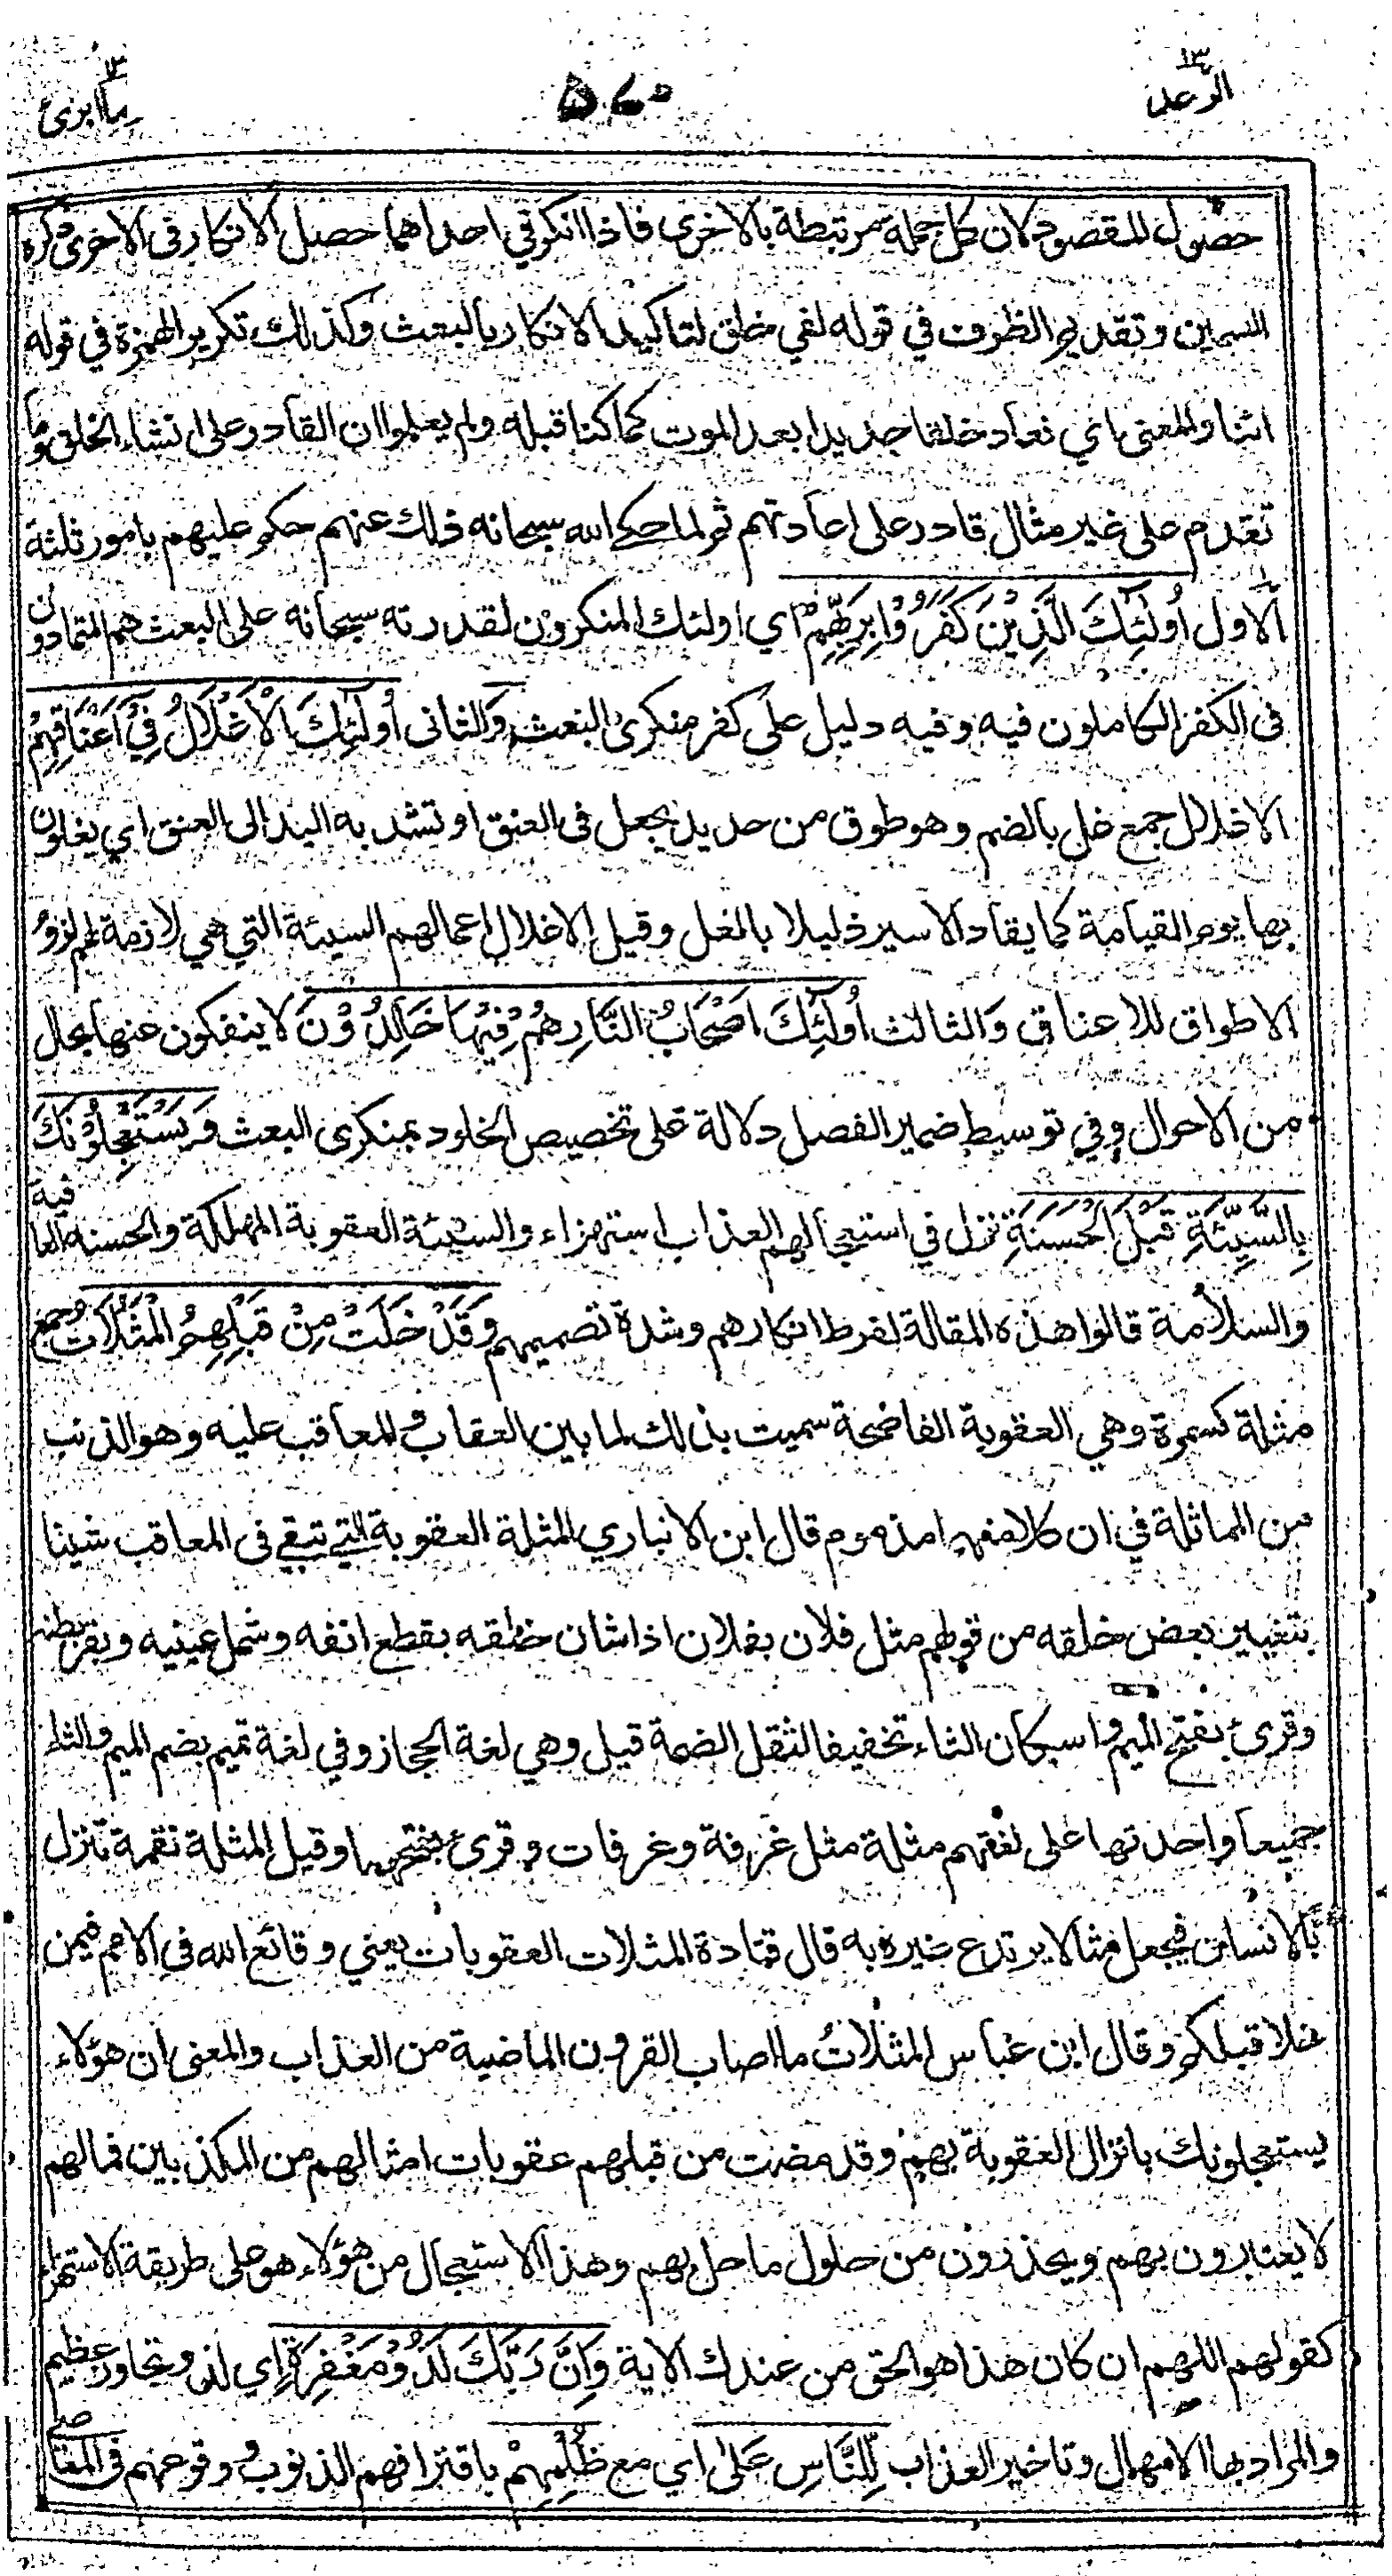 الرعد ١٣
٥٤٠
وما ابرئ ١٣
حصول المقصود لان كل جملة مرتبطة بالاخرى فاذا انكر في احداهما حصل الانكار في الاخرى ذكره
السمين وتقديم الظرف في قوله لفي خلق لتاكيد الانكار بالبعث وكذلك تكرير الهمزة في قوله
ائنا والمعنى باي نعاد خلقا جديدا بعد الموت كما كنا قبله ولم يعلموا ان القادر على انشاء الخلق وما
تقدم على غير مثال قادر على اعادتهم ثم لما حكى الله سبحانه ذلك عنهم حكم عليهم بامور ثلثة
الاول اُولٰٓئِكَ الَّذِيْنَ كَفَرُوْا بِرَبِّهِمْ اي اولئك المنكرون لقدرته سبحانه على البعث هم المتمادون
في الكفر الكاملون فيه وفيه دليل على كفر منكرى البعث والثانى اُولٰٓئِكَ الْاَغْلَالُ فِيْٓ اَعْنَاقِهِمْ
الاغلال جمع غل بالضم وهو طوق من حديد يجعل فى العنق او تشد به اليد الى العنق اي يغلون
بها يوم القيامة كما يقاد الاسير ذليلا بالغل وقيل الاغلال اعمالهم السيئة التي هي لازمة لهم لزوم
الاطواق للاعناق والثالث اُولٰٓئِكَ اَصْحَابُ النَّارِ هُمْ فِيْهَا خَالِدُوْنَ لا ينفكون عنها بحال
من الاحوال وفي توسيط ضمير الفصل دلالة على تخصيص الخلود بمنكرى البعث وَيَسْتَعْجِلُوْنَكَ
بِالسَّيِّئَةِ قَبْلَ الْحَسَنَةِ نزل في استعجالهم العذاب استهزاء والسيئة العقوبة المهلكة والحسنة العافية
والسلامة قالوا هذه المقالة لفرط انكارهم وشدة تصميمهم وَقَدْ خَلَتْ مِنْ قَبْلِهِمُ الْمَثُلَاتُ جمع
مثلة كسمرة وهي العقوبة الفاضحة سميت بذلك لما بين العقاب والمعاقب عليه وهو الذنب
من المماثلة في ان كلا منهما مذموم قال ابن الانباري المثلة العقوبة التي تبقي فى المعاقب شينا
بتغيير بعض خلقه من قولهم مثل فلان بفلان اذا شان خلقه بقطع انفه وسمل عينيه وبقر بطنه
وقرئ بفتح الميم واسكان الثاء تخفيفا لثقل الضمة قيل وهي لغة الحجاز وفي لغة تميم بضم الميم والثاء
جميعا واحدتها على لغتهم مثلة مثل غرفة وغرفات وقرئ بفتحهما وقيل المثلة نقمة تنزل
بالانسان فيجعل مثالا يرتدع غيره به قال قتادة المثلات العقوبات يعني وقائع الله فى الامم فيمن
خلا قبلكم وقال ابن عباس المثلات ما اصاب القرون الماضية من العذاب والمعنى ان هؤلاء
يستعجلونك بانزال العقوبة بهم وقد مضت من قبلهم عقوبات امثالهم من المكذبين فما لهم
لا يعتبرون بهم ويحذرون من حلول ما حل بهم وهذا الاستعجال من هؤلاء هو على طريقة الاستهزاء
كقولهم اللهم ان كان هذا هو الحق من عندك الاية وَاِنَّ رَبَّكَ لَذُوْ مَغْفِرَةٍ اي لذو تجاوز عظيم
والمراد بها الامهال وتاخير العذاب لِّلنَّاسِ عَلٰى اي مع ظُلْمِهِمْ باقترافهم الذنوب ووقوعهم فى المعاصي